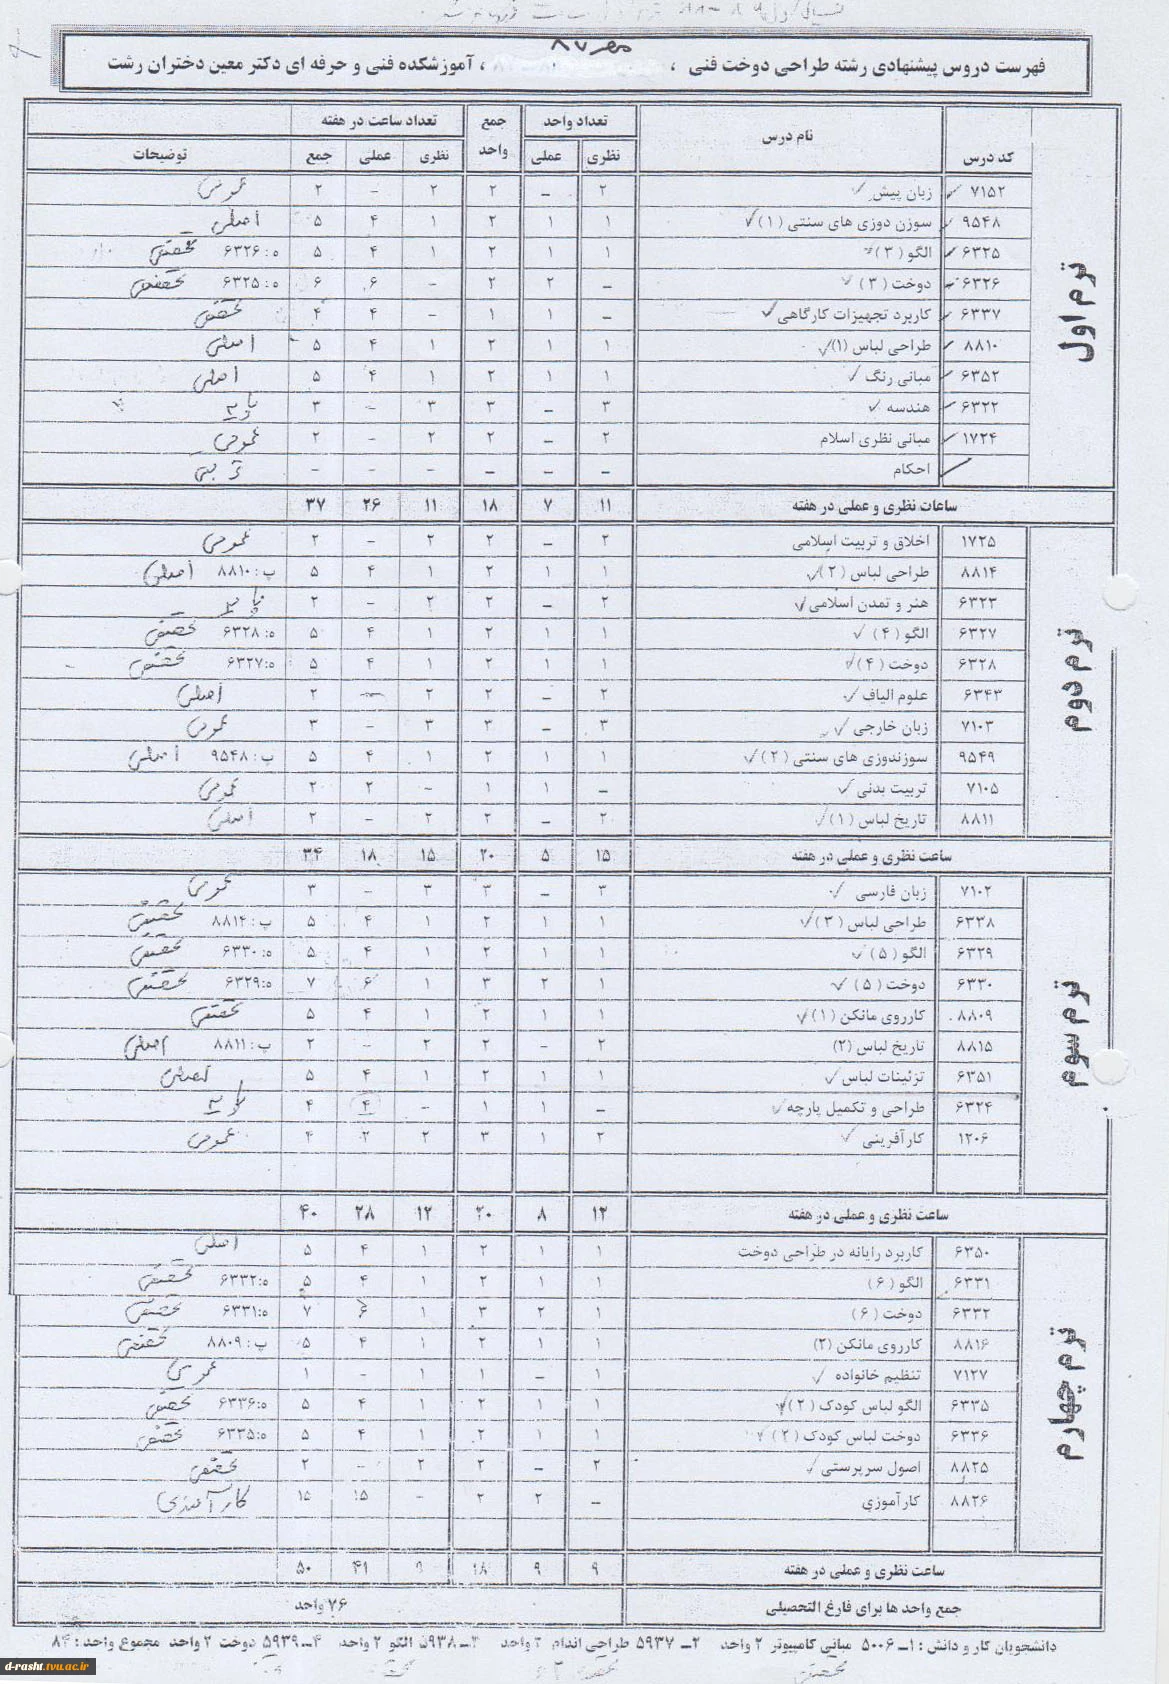 مهر ۸۷
فهرست دروس پیشنهادی رشته طراحی دوخت فنی ، آموزشکده فنی و حرفه ای دکتر معین دختران رشت
کد درس نام درس تعداد واحد جمع واحد تعداد ساعت در هفته توضیحات
نظری عملی نظری عملی جمع
ترم اول
۷۱۵۲ زبان پیش ۲ – ۲ ۲ – ۲ عمومی
۹۵۴۸ سوزن دوزی های سنتی (۱) ۱ ۱ ۲ ۱ ۴ ۵ اصلی
۶۳۲۵ الگو (۳) ۱ ۱ ۲ ۱ ۴ ۵ ه: ۶۳۲۶ تخصصی
۶۳۲۶ دوخت (۳) – ۲ ۲ – ۶ ۶ ه: ۶۳۲۵ تخصصی
۶۳۳۷ کاربرد تجهیزات کارگاهی – ۱ ۱ – ۴ ۴ تخصصی
۸۸۱۰ طراحی لباس (۱) ۱ ۱ ۲ ۱ ۴ ۵ اصلی
۶۳۵۲ مبانی رنگ ۱ ۱ ۲ ۱ ۴ ۵ اصلی
۶۳۲۲ هندسه ۳ – ۳ ۳ – ۳ پایه
۱۷۲۴ مبانی نظری اسلام ۲ – ۲ ۲ – ۲ عمومی
احکام – – – – – –
ساعات نظری و عملی در هفته ۱۱ ۷ ۱۸ ۱۱ ۲۶ ۳۷
ترم دوم
۱۷۲۵ اخلاق و تربیت اسلامی ۲ – ۲ ۲ – ۲ عمومی
۸۸۱۴ طراحی لباس (۲) ۱ ۱ ۲ ۱ ۴ ۵ پ: ۸۸۱۰ اصلی
۶۳۲۳ هنر و تمدن اسلامی ۲ – ۲ ۲ – ۲ پایه
۶۳۲۷ الگو (۴) ۱ ۱ ۲ ۱ ۴ ۵ ه: ۶۳۲۸ تخصصی
۶۳۲۸ دوخت (۴) ۱ ۱ ۲ ۱ ۴ ۵ ه: ۶۳۲۷ تخصصی
۶۳۴۳ علوم الیاف ۲ – ۲ ۲ – ۲ اصلی
۷۱۰۳ زبان خارجی ۳ – ۳ ۳ – ۳ عمومی
۹۵۴۹ سوزندوزی های سنتی (۲) ۱ ۱ ۲ ۱ ۴ ۵ پ: ۹۵۴۸ اصلی
۷۱۰۵ تربیت بدنی – ۱ ۱ – ۲ ۲ عمومی
۸۸۱۱ تاریخ لباس (۱) ۲ – ۲ ۲ – ۲ اصلی
ساعت نظری و عملی در هفته ۱۵ ۵ ۲۰ ۱۵ ۱۸ ۳۴
ترم سوم
۷۱۰۲ زبان فارسی ۳ – ۳ ۳ – ۳ عمومی
۶۳۳۸ طراحی لباس (۳) ۱ ۱ ۲ ۱ ۴ ۵ پ: ۸۸۱۴ تخصصی
۶۳۲۹ الگو (۵) ۱ ۱ ۲ ۱ ۴ ۵ ه: ۶۳۳۰ تخصصی
۶۳۳۰ دوخت (۵) ۱ ۲ ۳ ۱ ۶ ۷ ه: ۶۳۲۹ تخصصی
۸۸۰۹ کارروی مانکن (۱) ۱ ۱ ۲ ۱ ۴ ۵ تخصصی
۸۸۱۵ تاریخ لباس (۲) ۲ – ۲ ۲ – ۲ پ: ۸۸۱۱ اصلی
۶۳۵۱ تزئینات لباس ۱ ۱ ۲ ۱ ۴ ۵ اصلی
۶۳۲۴ طراحی و تکمیل پارچه – ۱ ۱ – ۴ ۴ پایه
۱۲۰۶ کارآفرینی ۲ ۱ ۳ ۲ ۲ ۴ عمومی
ساعت نظری و عملی در هفته ۱۲ ۸ ۲۰ ۱۲ ۲۸ ۴۰
ترم چهارم
۶۳۵۰ کاربرد رایانه در طراحی دوخت ۱ ۱ ۲ ۱ ۴ ۵ اصلی
۶۳۳۱ الگو (۶) ۱ ۱ ۲ ۱ ۴ ۵ ه: ۶۳۳۲ تخصصی
۶۳۳۲ دوخت (۶) ۱ ۲ ۳ ۱ ۶ ۷ ه: ۶۳۳۱ تخصصی
۸۸۱۶ کارروی مانکن (۲) ۱ ۱ ۲ ۱ ۴ ۵ پ: ۸۸۰۹ تخصصی
۷۱۲۷ تنظیم خانواده ۱ – ۱ ۱ – ۱ عمومی
۶۳۳۵ الگو لباس کودک (۲) ۱ ۱ ۲ ۱ ۴ ۵ ه: ۶۳۳۶ تخصصی
۶۳۳۶ دوخت لباس کودک (۲) ۱ ۱ ۲ ۱ ۴ ۵ ه: ۶۳۳۵ تخصصی
۸۸۲۵ اصول سرپرستی ۲ – ۲ ۲ – ۲ تخصصی
۸۸۲۶ کارآموزی – ۲ ۲ – ۱۵ ۱۵ کارآموزی
ساعت نظری و عملی در هفته ۹ ۹ ۱۸ ۹ ۴۱ ۵۰
جمع واحد ها برای فارغ التحصیلی ۷۶ واحد
دانشجویان کار و دانش : ۱ــ ۵۰۰۶ مبانی کامپیوتر ۲ واحد ۲ــ ۵۹۳۷ طراحی اندام ۲ واحد ۳ــ ۵۹۳۸ الگو ۲ واحد ۴ــ ۵۹۳۹ دوخت ۲ واحد مجموع واحد : ۸۴
d-rasht.tvu.ac.ir